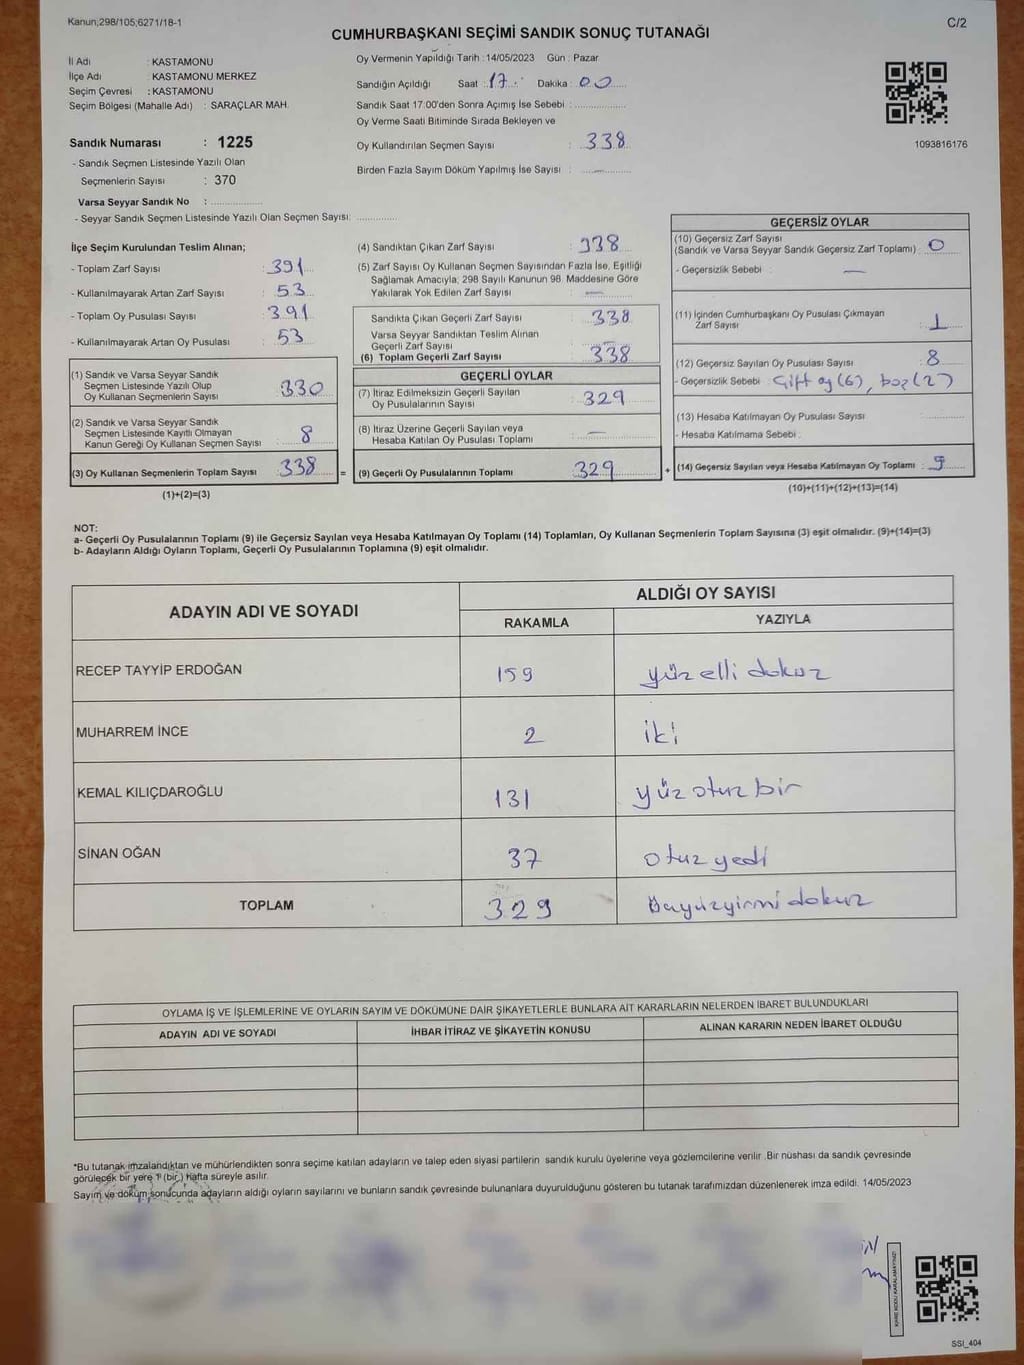 Kanun;298/105;6271/18-1
C/2
CUMHURBAŞKANI SEÇİMİ SANDIK SONUÇ TUTANAĞI
İl Adı : KASTAMONU
İlçe Adı : KASTAMONU MERKEZ
Seçim Çevresi : KASTAMONU
Seçim Bölgesi (Mahalle Adı) : SARAÇLAR MAH.
Sandık Numarası : 1225
- Sandık Seçmen Listesinde Yazılı Olan
Seçmenlerin Sayısı : 370
Varsa Seyyar Sandık No :
- Seyyar Sandık Seçmen Listesinde Yazılı Olan Seçmen Sayısı:
Oy Vermenin Yapıldığı Tarih : 14/05/2023 Gün : Pazar
Sandığın Açıldığı Saat : 17 Dakika : 00
Sandık Saat 17:00'den Sonra Açımış İse Sebebi :
Oy Verme Saati Bitiminde Sırada Bekleyen ve
Oy Kullandırılan Seçmen Sayısı : 338
Birden Fazla Sayım Döküm Yapılmış İse Sayısı : —
1093816176
İlçe Seçim Kurulundan Teslim Alınan;
- Toplam Zarf Sayısı : 391
- Kullanılmayarak Artan Zarf Sayısı : 53
- Toplam Oy Pusulası Sayısı : 391
- Kullanılmayarak Artan Oy Pusulası : 53
(1) Sandık ve Varsa Seyyar Sandık
Seçmen Listesinde Yazılı Olup
Oy Kullanan Seçmenlerin Sayısı : 330
(2) Sandık ve Varsa Seyyar Sandık
Seçmen Listesinde Kayıtlı Olmayan
Kanun Gereği Oy Kullanan Seçmen Sayısı : 8
(3) Oy Kullanan Seçmenlerin Toplam Sayısı : 338 =
(1)+(2)=(3)
(4) Sandıktan Çıkan Zarf Sayısı : 338
(5) Zarf Sayısı Oy Kullanan Seçmen Sayısından Fazla İse, Eşitliği
Sağlamak Amacıyla; 298 Sayılı Kanunun 98. Maddesine Göre
Yakılarak Yok Edilen Zarf Sayısı : —
Sandıkta Çıkan Geçerli Zarf Sayısı : 338
Varsa Seyyar Sandıktan Teslim Alınan
Geçerli Zarf Sayısı :
(6) Toplam Geçerli Zarf Sayısı : 338
GEÇERLİ OYLAR
(7) İtiraz Edilmeksizin Geçerli Sayılan
Oy Pusulalarının Sayısı : 329
(8) İtiraz Üzerine Geçerli Sayılan veya
Hesaba Katılan Oy Pusulası Toplamı : —
(9) Geçerli Oy Pusulalarının Toplamı : 329 +
GEÇERSİZ OYLAR
(10) Geçersiz Zarf Sayısı
(Sandık ve Varsa Seyyar Sandık Geçersiz Zarf Toplamı) : 0
- Geçersizlik Sebebi : —
(11) İçinden Cumhurbaşkanı Oy Pusulası Çıkmayan
Zarf Sayısı : 1
(12) Geçersiz Sayılan Oy Pusulası Sayısı : 8
- Geçersizlik Sebebi : Çift oy (6), boş (2)
(13) Hesaba Katılmayan Oy Pusulası Sayısı :
- Hesaba Katılmama Sebebi :
(14) Geçersiz Sayılan veya Hesaba Katılmayan Oy Toplamı : 9
(10)+(11)+(12)+(13)=(14)
NOT:
a- Geçerli Oy Pusulalarının Toplamı (9) ile Geçersiz Sayılan veya Hesaba Katılmayan Oy Toplamı (14) Toplamları, Oy Kullanan Seçmenlerin Toplam Sayısına (3) eşit olmalıdır. (9)+(14)=(3)
b- Adayların Aldığı Oyların Toplamı, Geçerli Oy Pusulalarının Toplamına (9) eşit olmalıdır.
ADAYIN ADI VE SOYADI
ALDIĞI OY SAYISI
RAKAMLA YAZIYLA
RECEP TAYYİP ERDOĞAN 159 yüz elli dokuz
MUHARREM İNCE 2 iki
KEMAL KILIÇDAROĞLU 131 yüz otuz bir
SİNAN OĞAN 37 otuz yedi
TOPLAM 329 üçyüzyirmi dokuz
OYLAMA İŞ VE İŞLEMLERİNE VE OYLARIN SAYIM VE DÖKÜMÜNE DAİR ŞİKAYETLERLE BUNLARA AİT KARARLARIN NELERDEN İBARET BULUNDUKLARI
ADAYIN ADI VE SOYADI İHBAR İTİRAZ VE ŞİKAYETİN KONUSU ALINAN KARARIN NEDEN İBARET OLDUĞU
*Bu tutanak imzalandıktan ve mühürlendikten sonra seçime katılan adayların ve talep eden siyasi partilerin sandık kurulu üyelerine veya gözlemcilerine verilir .Bir nüshası da sandık çevresinde
görülecek bir yere 1 (bir ) hafta süreyle asılır.
Sayım ve döküm sonucunda adayların aldığı oyların sayılarını ve bunların sandık çevresinde bulunanlara duyurulduğunu gösteren bu tutanak tarafımızdan düzenlenerek imza edildi. 14/05/2023
KARE KODU KARALAMAYINIZ!
SSI_404